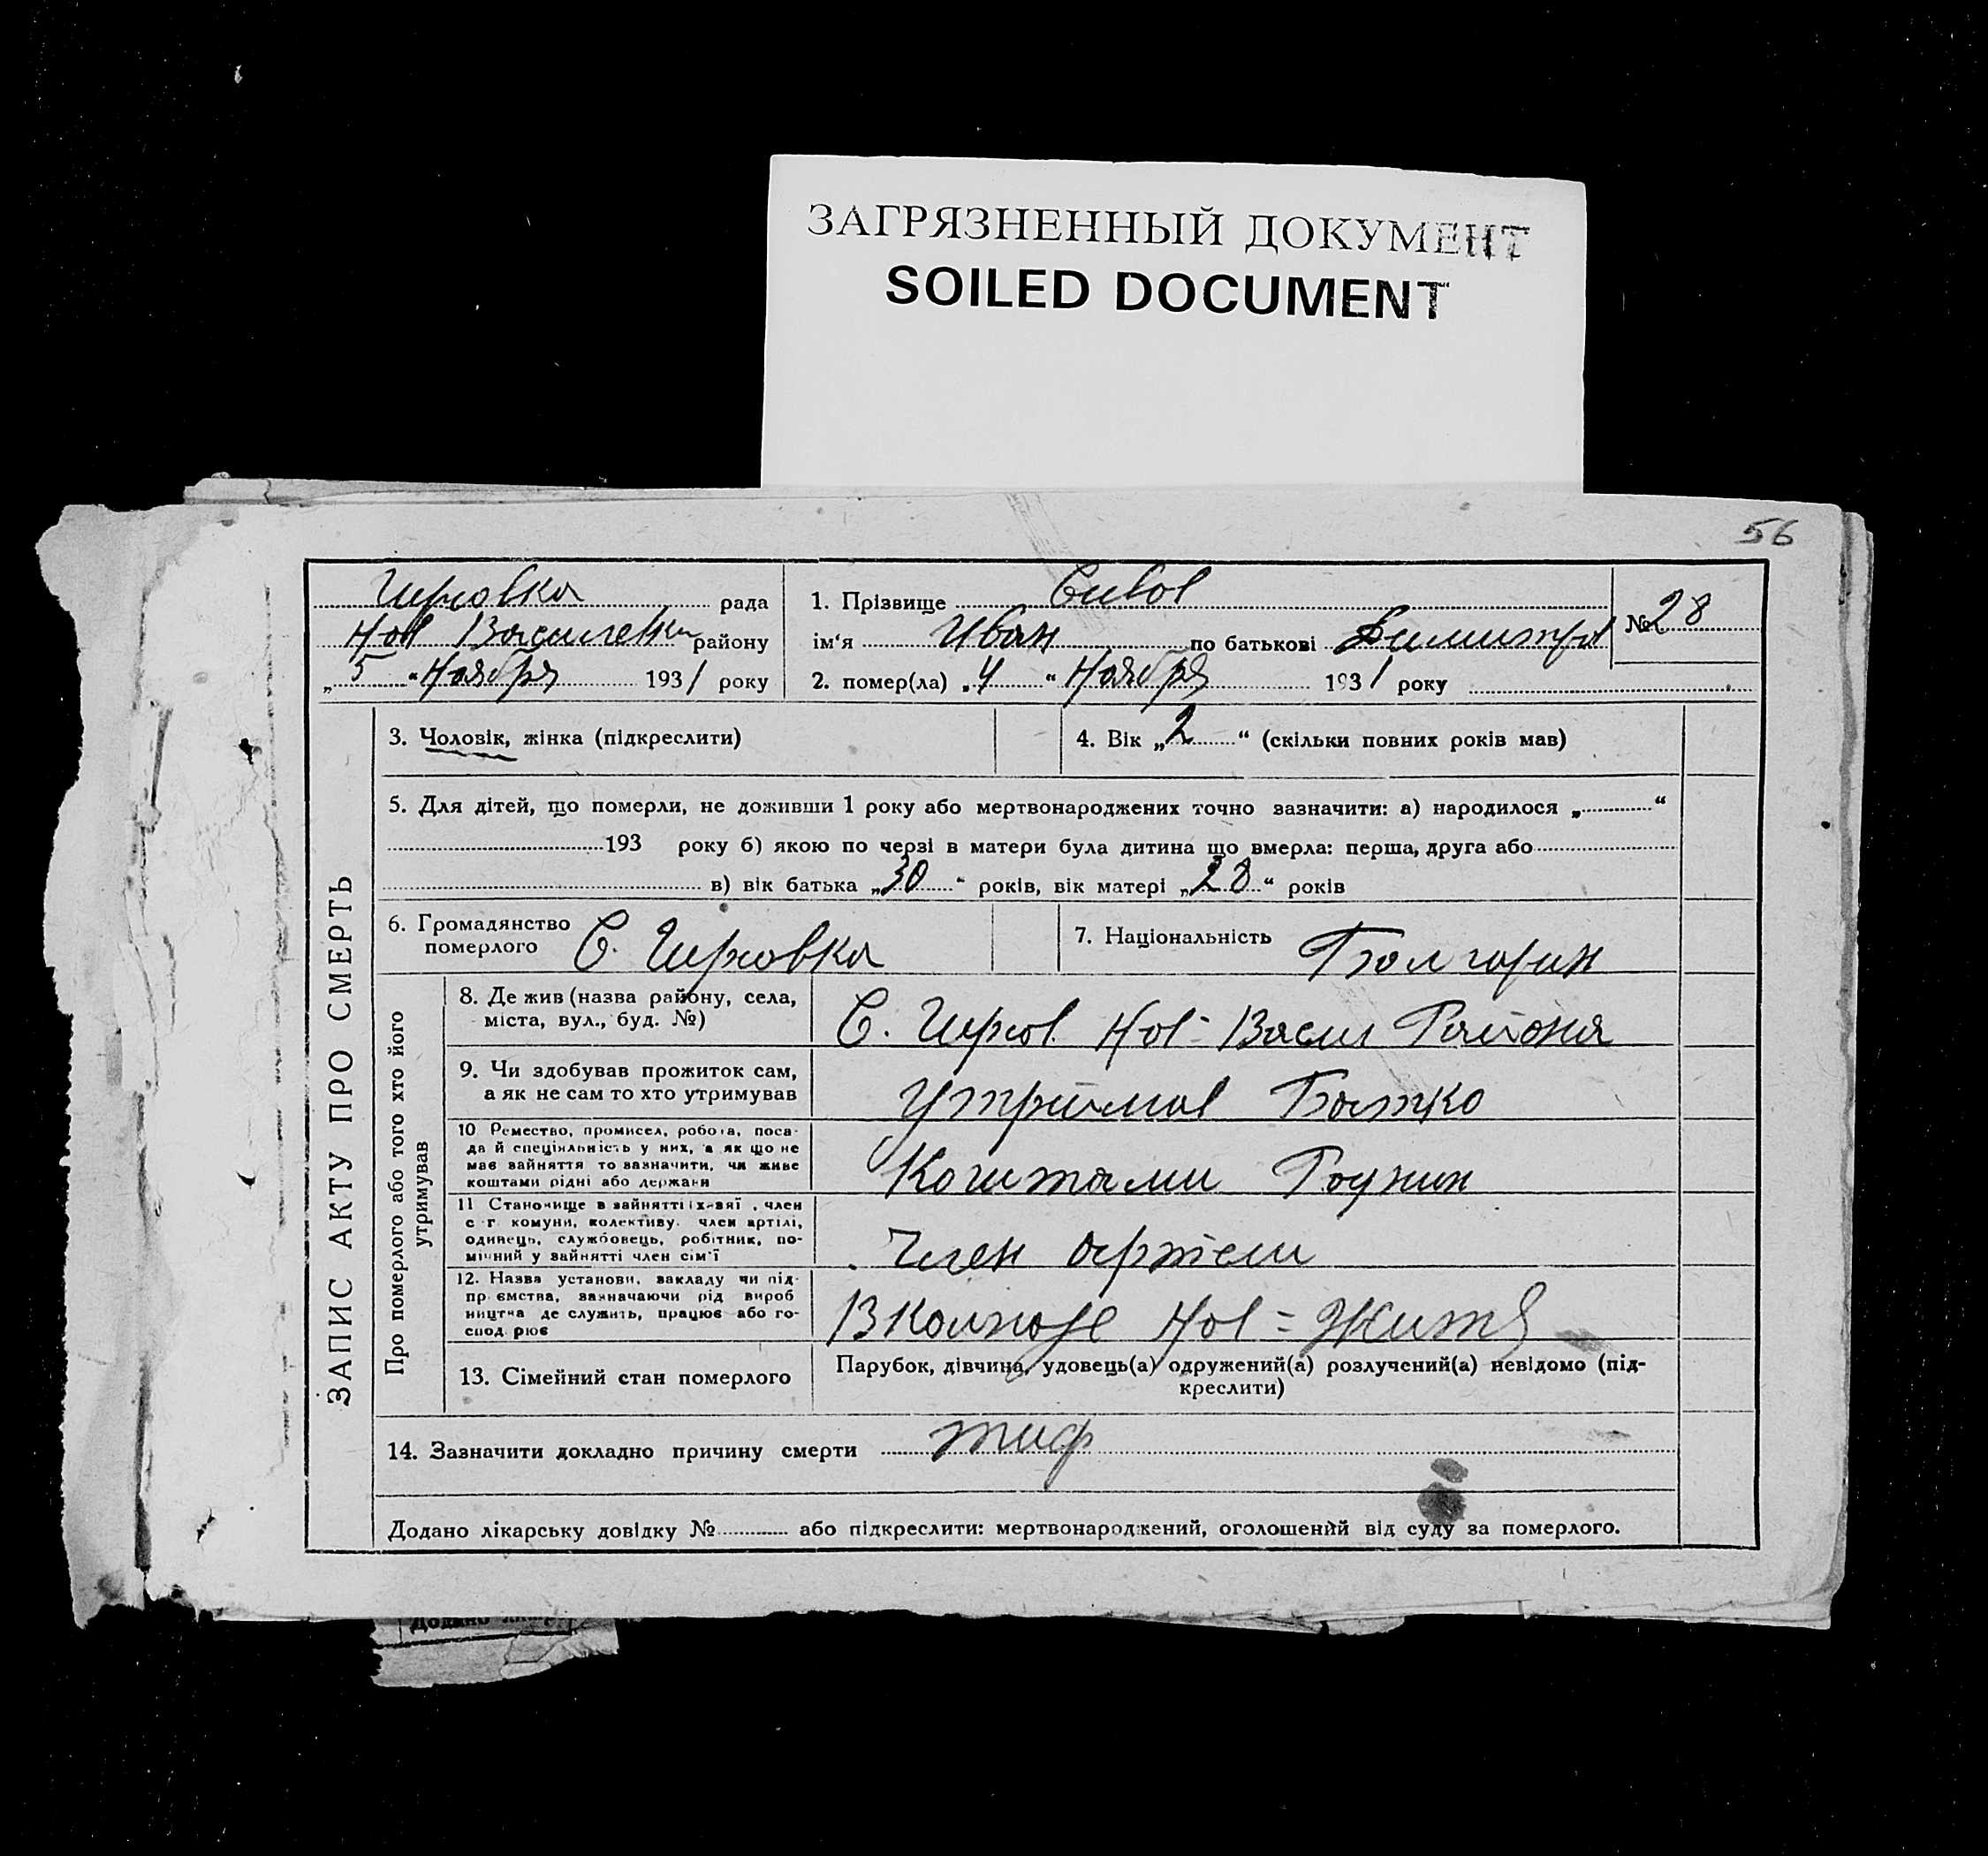 ЗАГРЯЗНЕННЫЙ ДОКУМЕНТ
SOILED DOCUMENT
56
Гирсовка рада
Нов Василевки району
„5“ Ноября 1931 року
1. Прізвище Сивов
ім‘я Иван по батькові Димитров
2. помер(ла) „4“ Ноября 1931 року
№ 28
ЗАПИС АКТУ ПРО СМЕРТЬ
3. Чоловік, жінка (підкреслити)
4. Вік „2“ (скільки повних років мав)
5. Для дітей, що померли, не доживши 1 року або мертвонароджених точно зазначити: а) народилося „ “
193 року б) якою по черзі в матери була дитина що вмерла: перша, друга або
в) вік батька „30“ років, вік матері „28“ років
6. Громадянство
померлого С. Гирсовка
7. Національність Болгарин
Про померлого або того хто його
утримував
8. Де жив (назва району, села,
міста, вул., буд. №)
С. Гирсов. Нов-Васил Района
9. Чи здобував прожиток сам,
а як не сам то хто утримував
Утримав Батко
10 Ремество, промисел, робота, поса-
да й спеціяльність у них, а як що не
має зайняття то зазначити, чи живе
коштами рідні або держави
Коштами
11 Становище в зайнятті , член
с г комуни, колективу. член артілі,
одинець, службовець, робітник, по-
мічний у зайнятті член сім'ї
Член артели
12. Назва установи, закладу чи під-
пр ємства, зазначаючи рід вироб
ництва де служить, працює або го-
спод рює
В колхозе Нов=Житя
13. Сімейний стан померлого
Парубок, дівчина, удовець(а) одружений(а) розлучений(а) невідомо (під-
креслити)
14. Зазначити докладно причину смерти тиф
Додано лікарську довідку № або підкреслити: мертвонароджений, оголошений від суду за померлого.